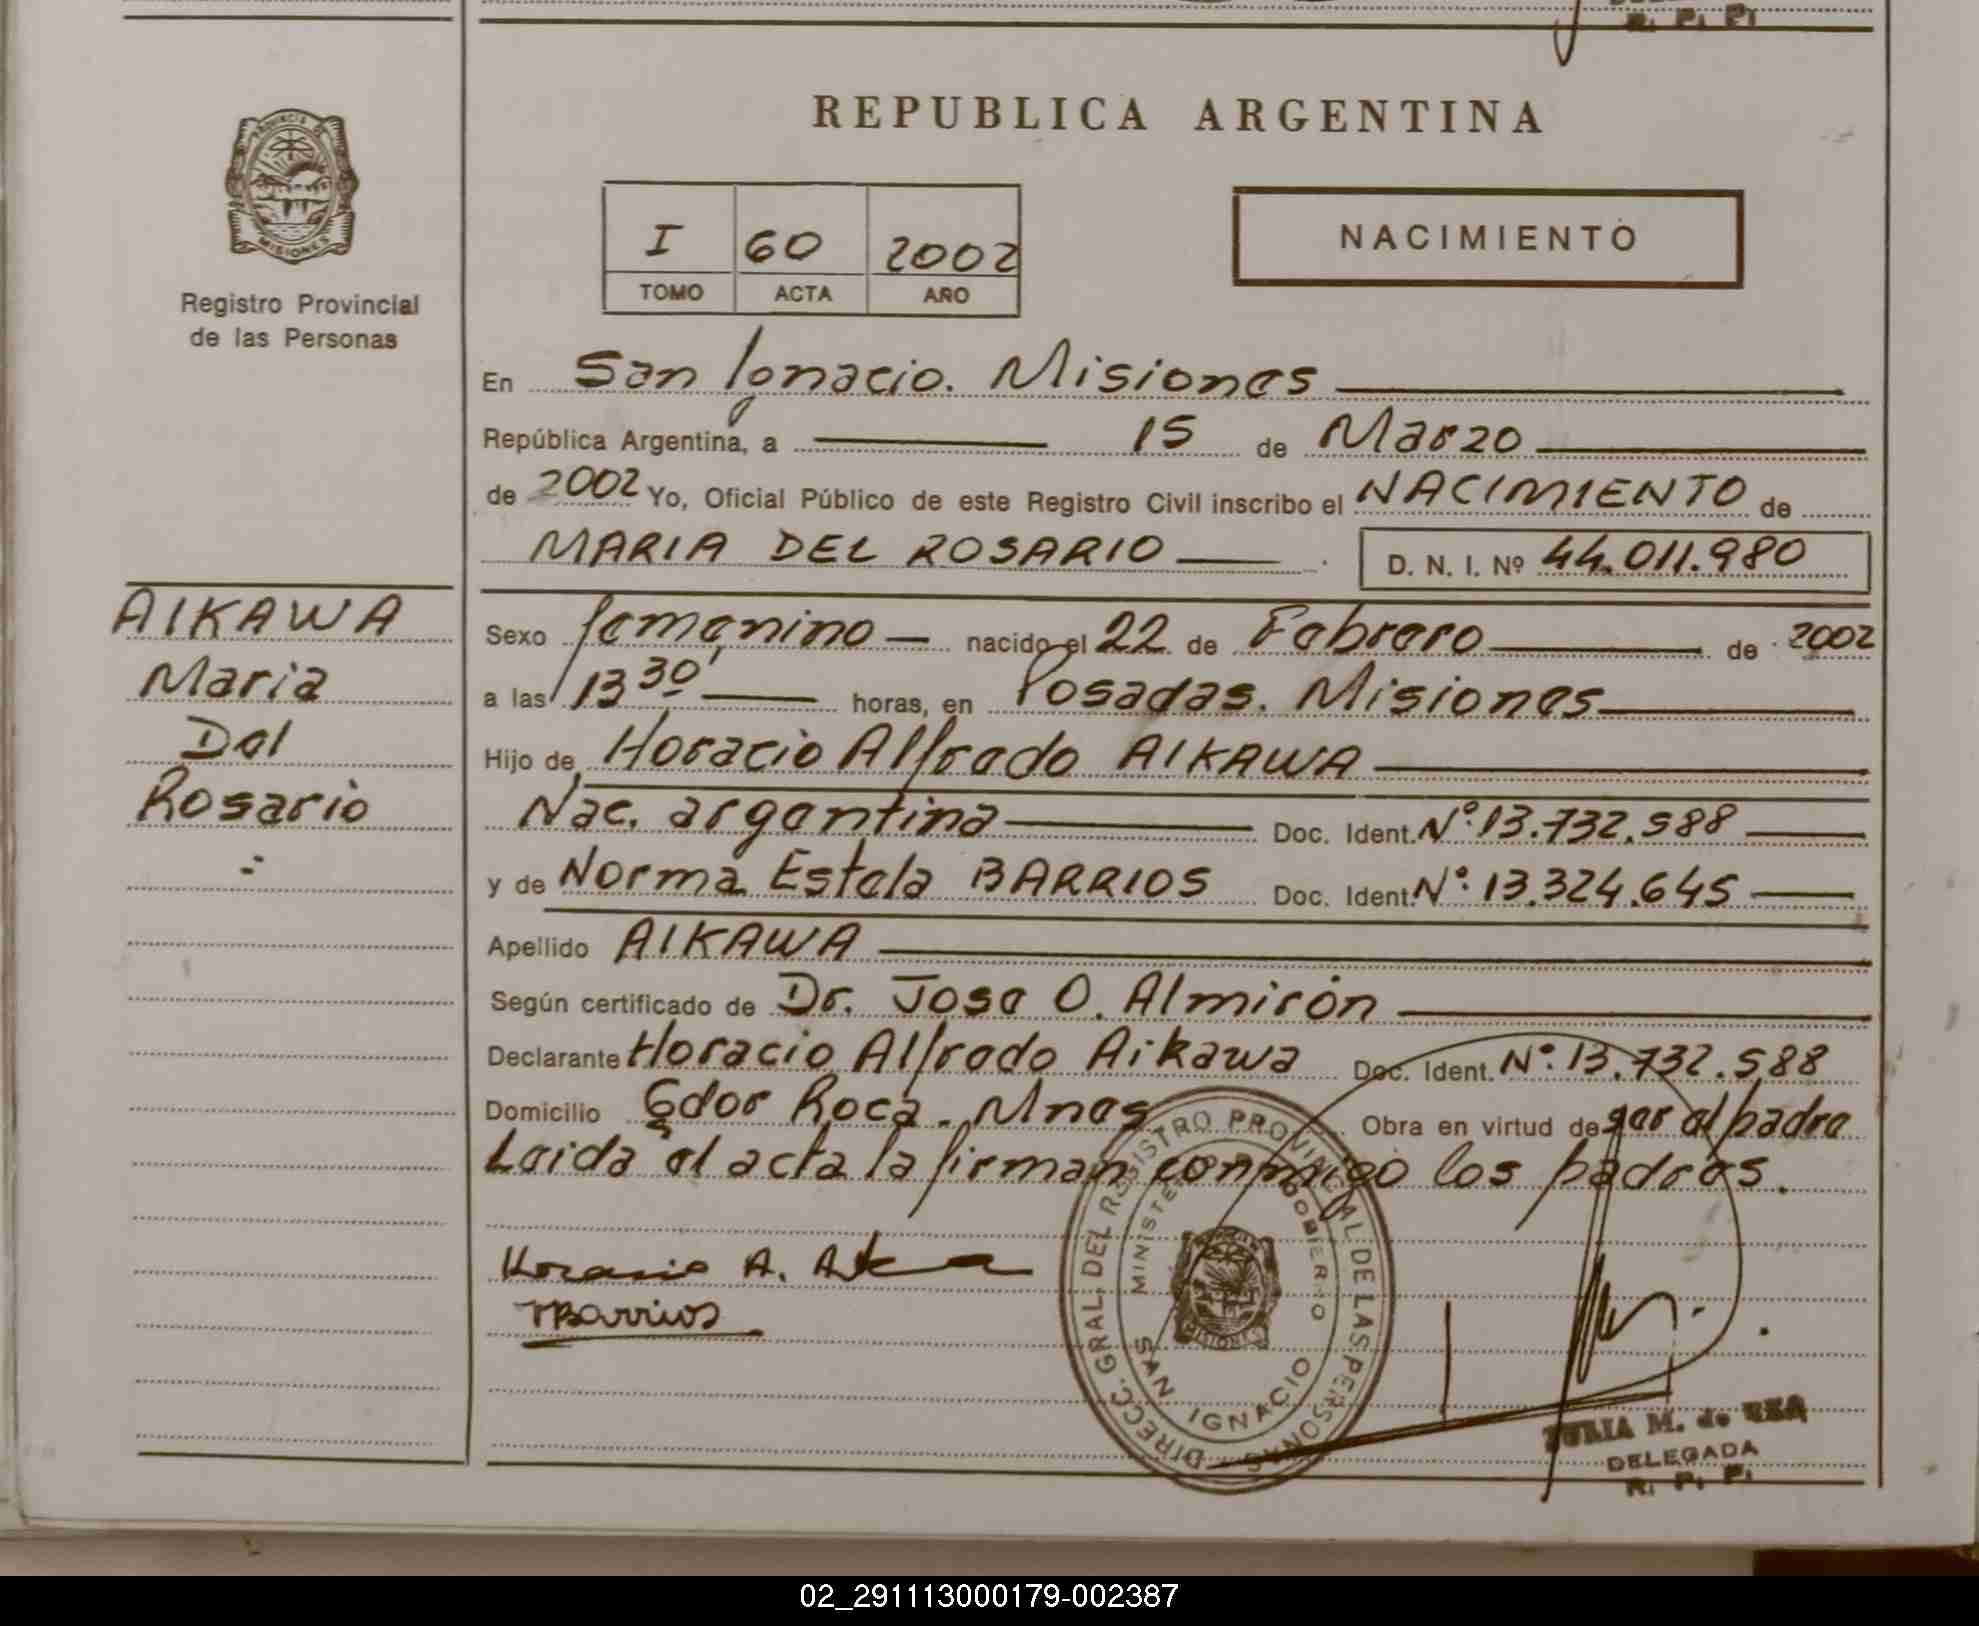 R. P. P.
REPUBLICA ARGENTINA
PROVINCIA DE
MISIONES
Registro Provincial
de las Personas
I 60 2002
TOMO ACTA AÑO
NACIMIENTO
En San Ignacio. Misiones
República Argentina, a 15 de Marzo
de 2002 Yo, Oficial Público de este Registro Civil inscribo el NACIMIENTO de
MARIA DEL ROSARIO D. N. I. Nº 44.011.980
AIKAWA
Maria
Del
Rosario
Sexo femenino nacido el 22 de Febrero de 2002
a las 13 30' horas, en Posadas. Misiones
Hijo de Horacio Alfredo AIKAWA
Nac. argentina Doc. Ident. Nº 13.732.588
y de Norma Estela BARRIOS Doc. Ident. Nº 13.324.645
Apellido AIKAWA
Según certificado de Dr. Jose O. Almirón
Declarante Horacio Alfredo Aikawa Doc. Ident. Nº 13.732.588
Domicilio Gdor Roca. Mnes Obra en virtud de ser el padre
Leida el acta la firman conmigo los padres.
Horacio A.
Barrios
DIRECC. GRAL. DEL REGISTRO PROVINCIAL DE LAS PERSONAS
MINISTERIO DE GOBIERNO
MISIONES
SAN IGNACIO
JULIA M. de
DELEGADA
R. P. P.
02_291113000179-002387